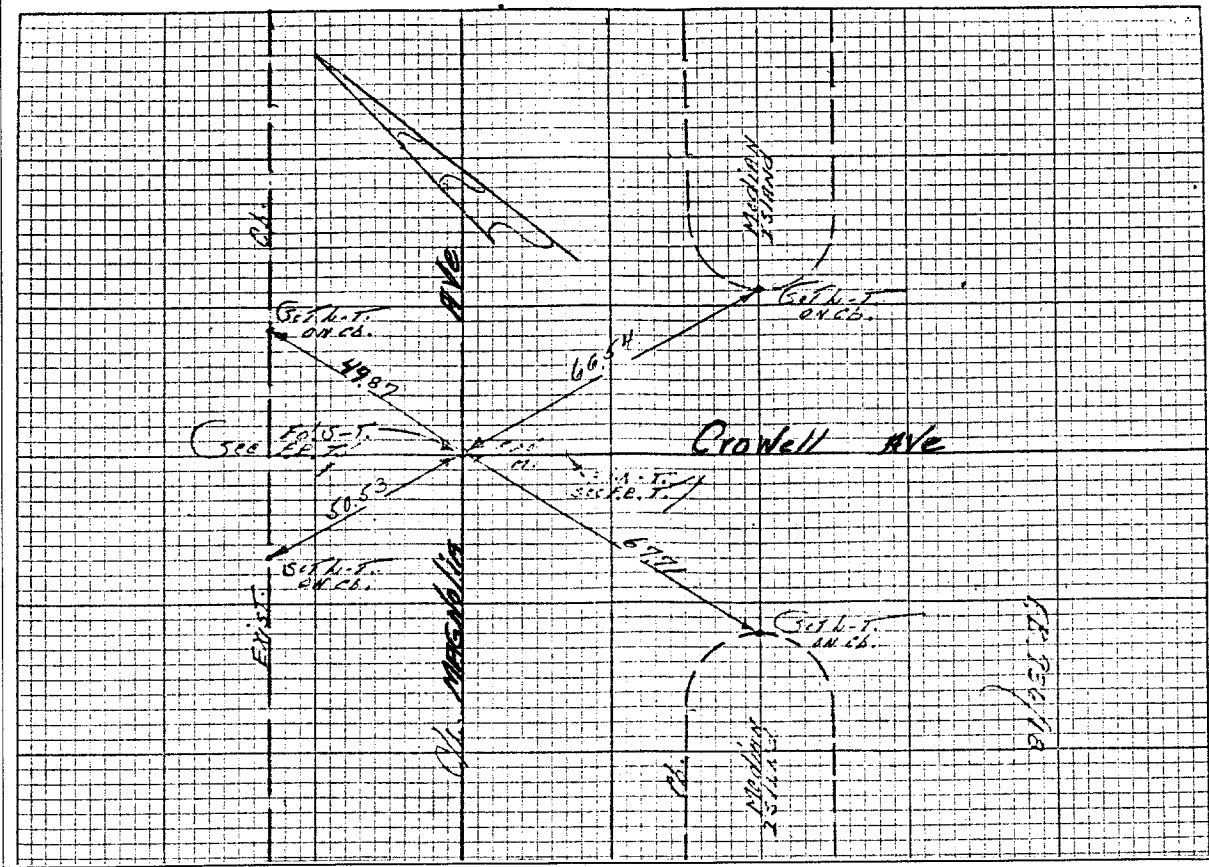 Median
Island
Cb.
Ave
Set L-T.
on Cb.
Set L-T.
on Cb.
49.87
66.54
See
Fd. S-T.
Crowell Ave
See F.B. T.
50.53
67.71
Set L-T.
on Cb.
Set L-T.
on Cb.
Exist.
C/L Magnolia
Cb.
Median
Island